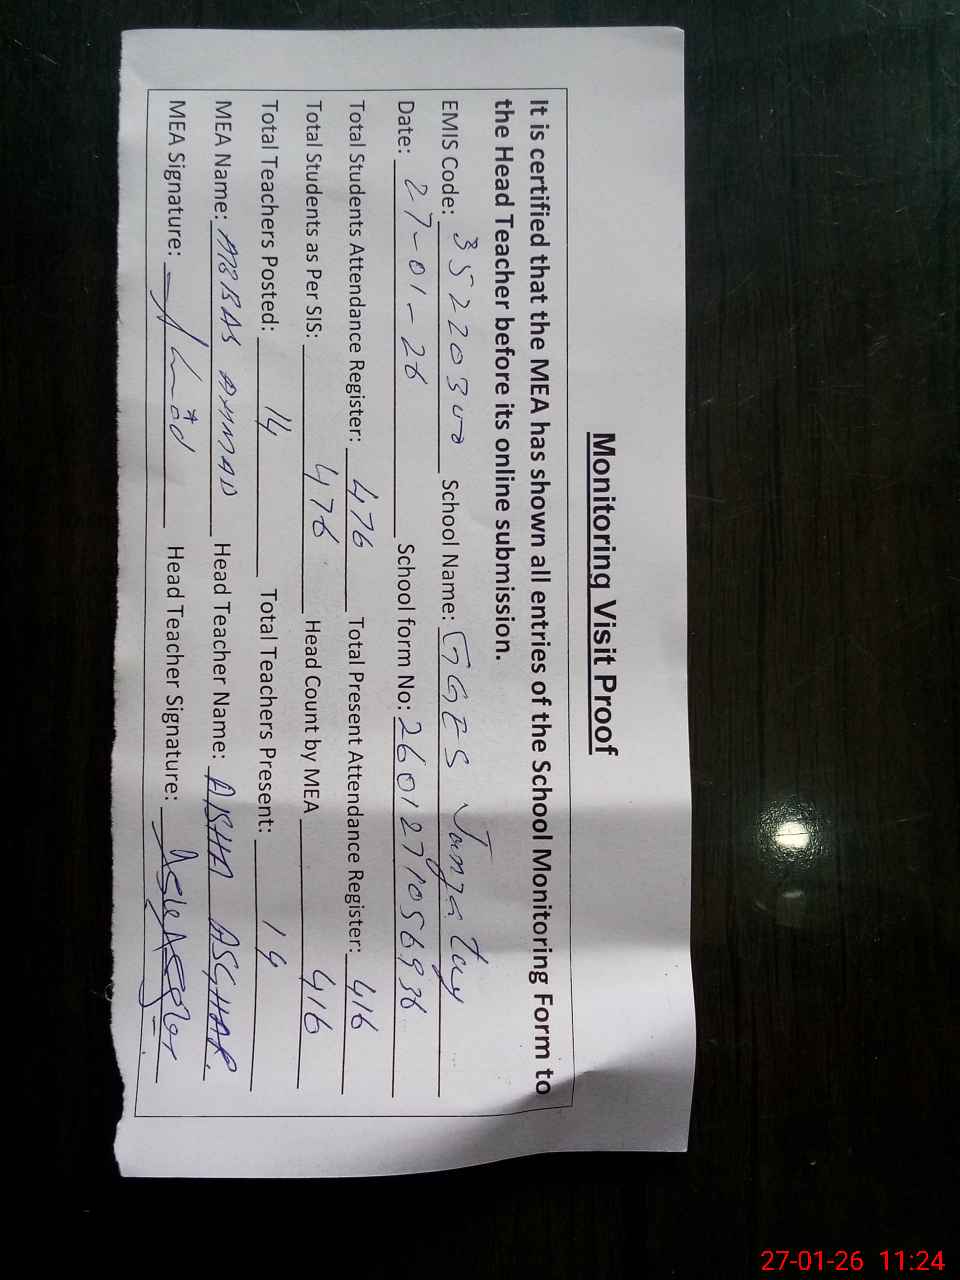 Monitoring Visit Proof
It is certified that the MEA has shown all entries of the School Monitoring Form to
the Head Teacher before its online submission.
EMIS Code: 35220300 School Name: GGES Janga
Date: 27-01-26 School form No: 2601271056936
Total Students Attendance Register: 476 Total Present Attendance Register: 416
Total Students as Per SIS: 476 Head Count by MEA 416
Total Teachers Posted: 14 Total Teachers Present: 14
MEA Name: ABBAS AHMAD Head Teacher Name: AISHA ASGHAR
MEA Signature: Head Teacher Signature:
27-01-26 11:24